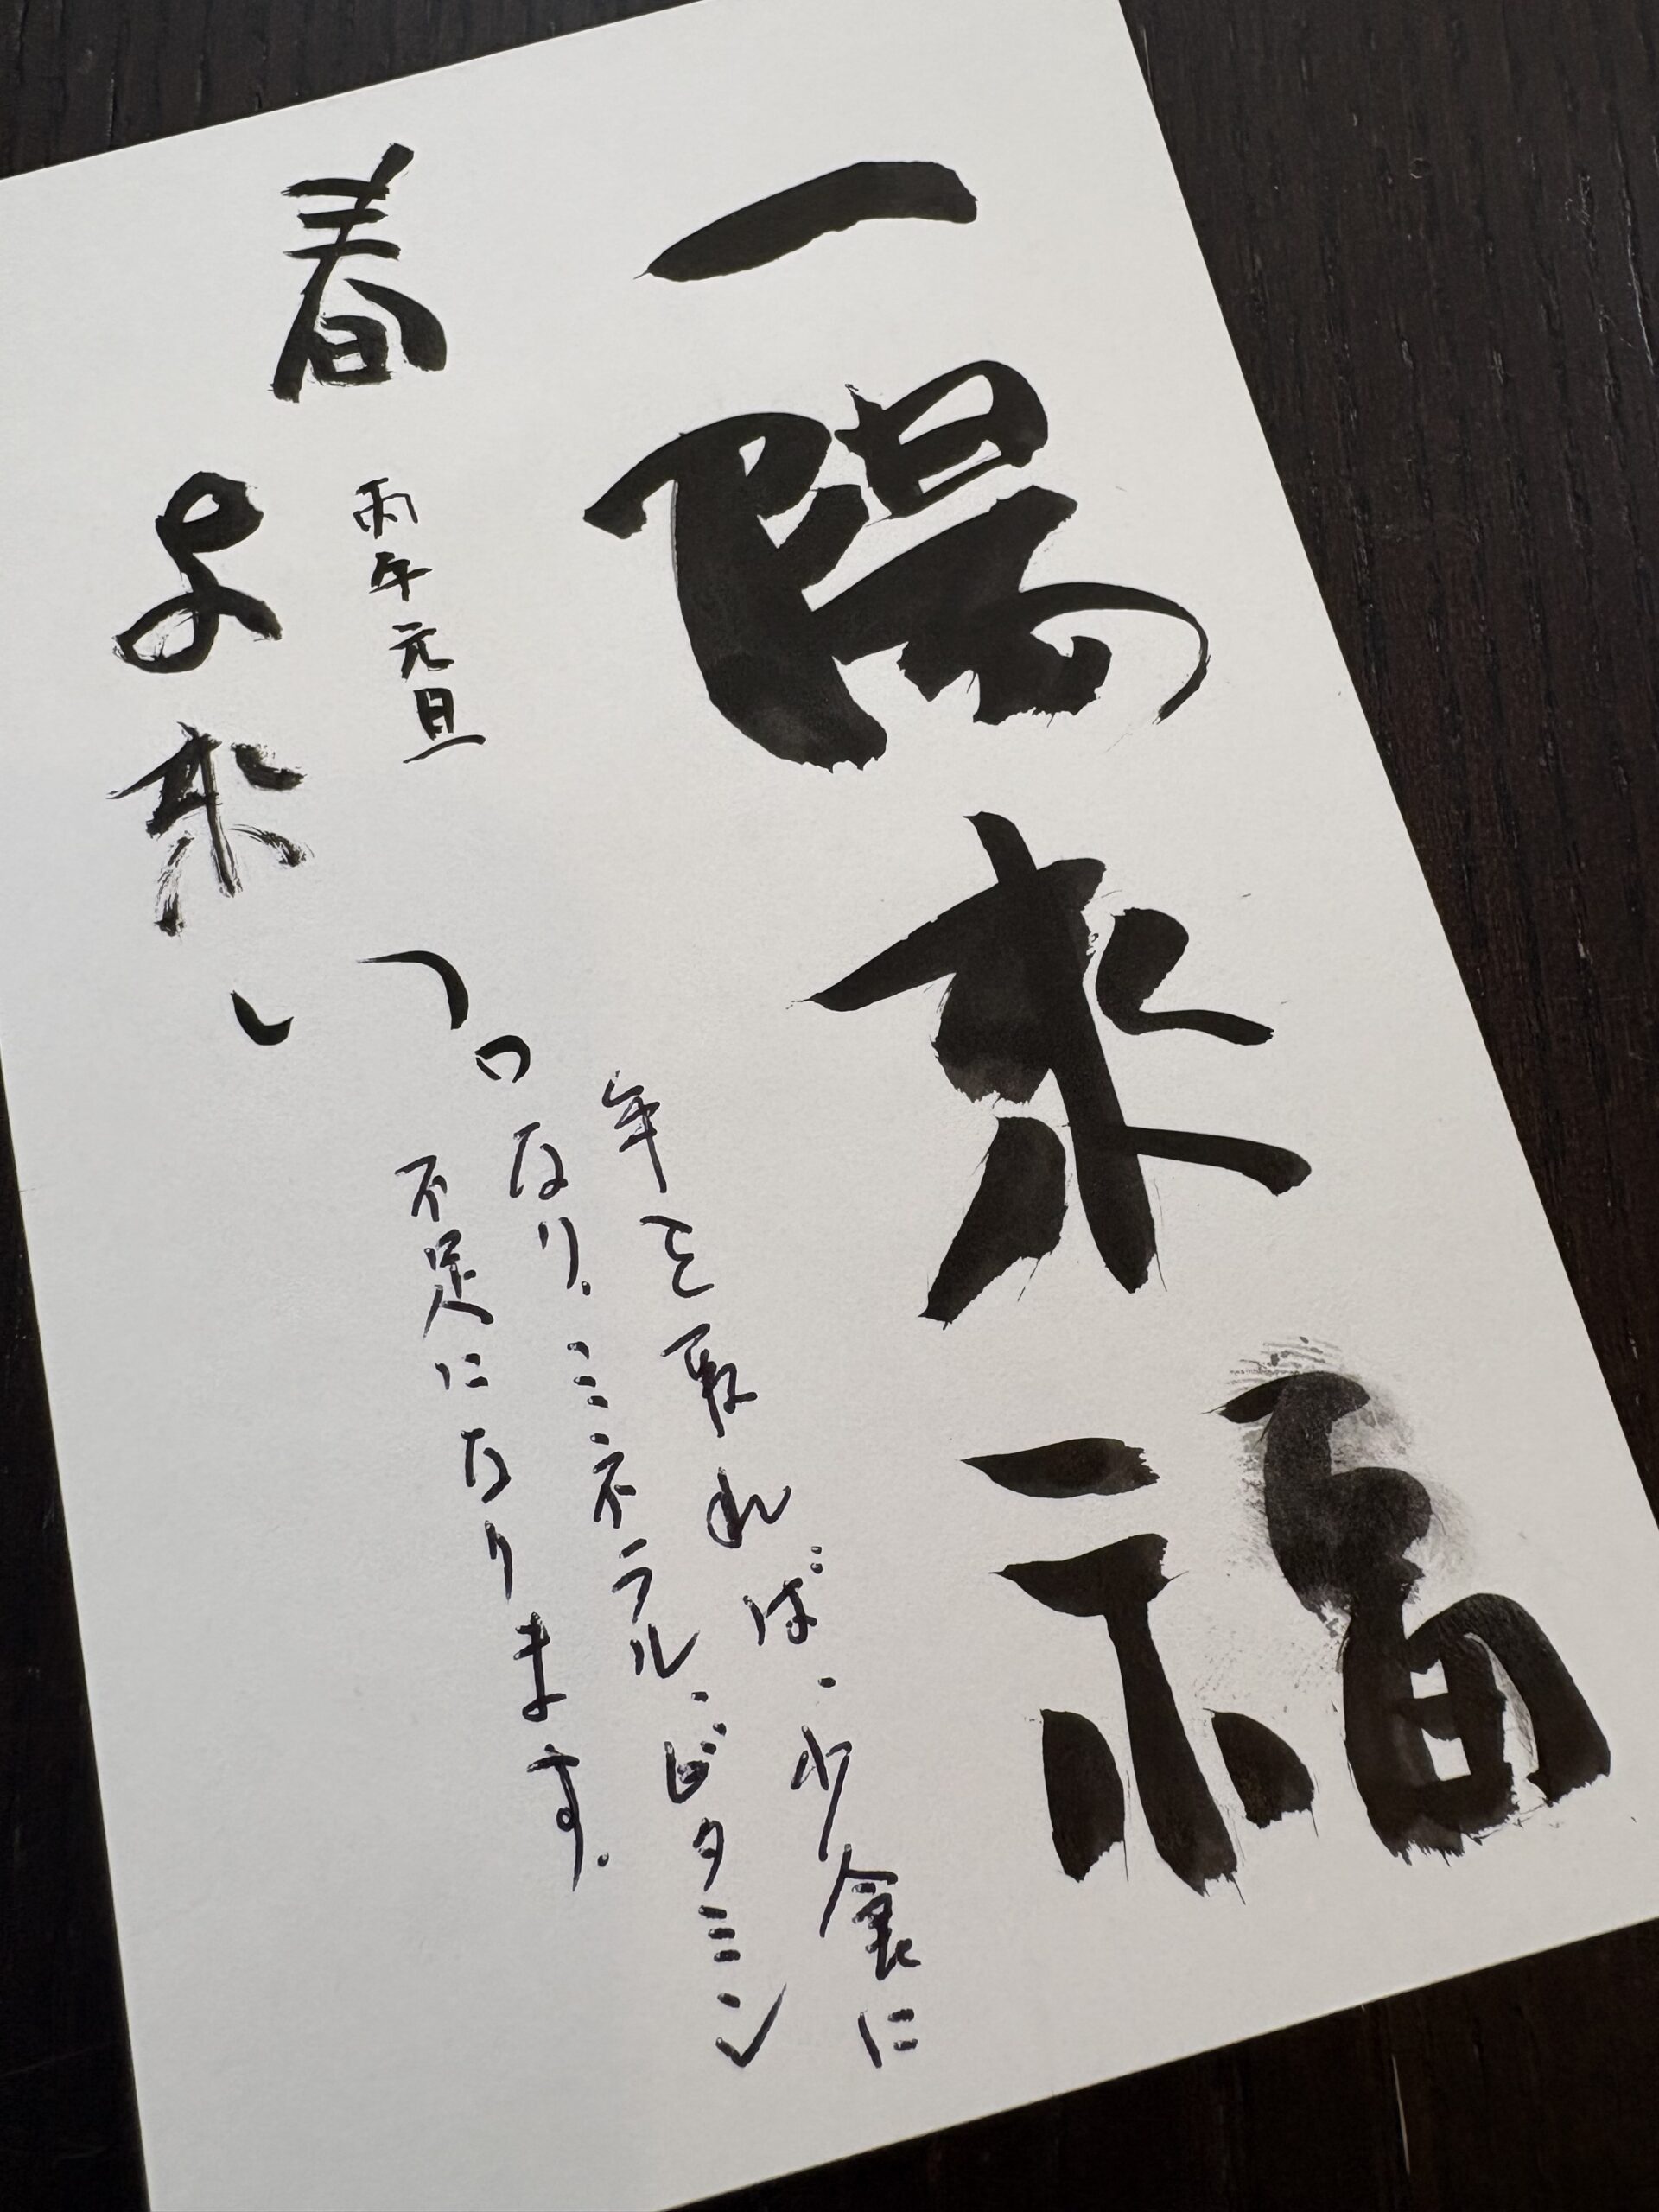 一陽来福
年を取れば、少食に
なり、ミネラル、ビタミン
不足になります。
丙午元旦
春よ来い